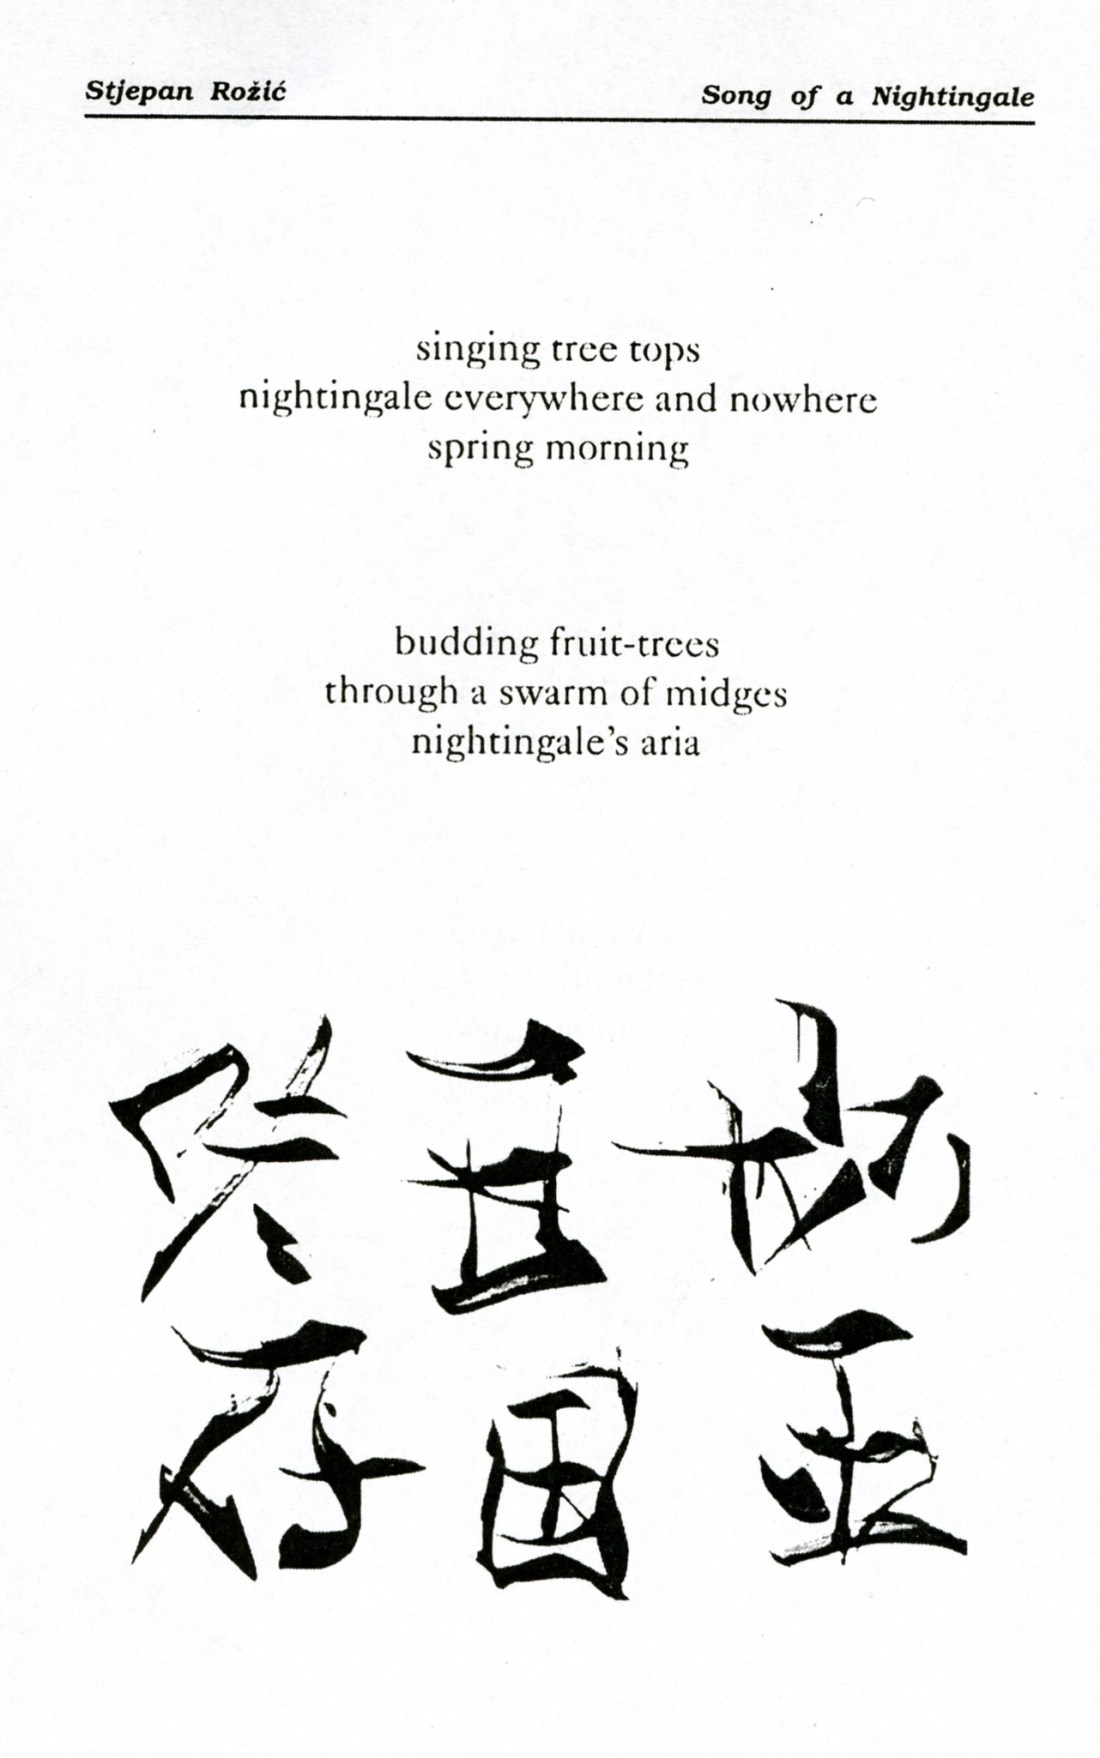 Stjepan Rožić
Song of a Nightingale
singing tree tops
nightingale everywhere and nowhere
spring morning
budding fruit-trees
through a swarm of midges
nightingale's aria